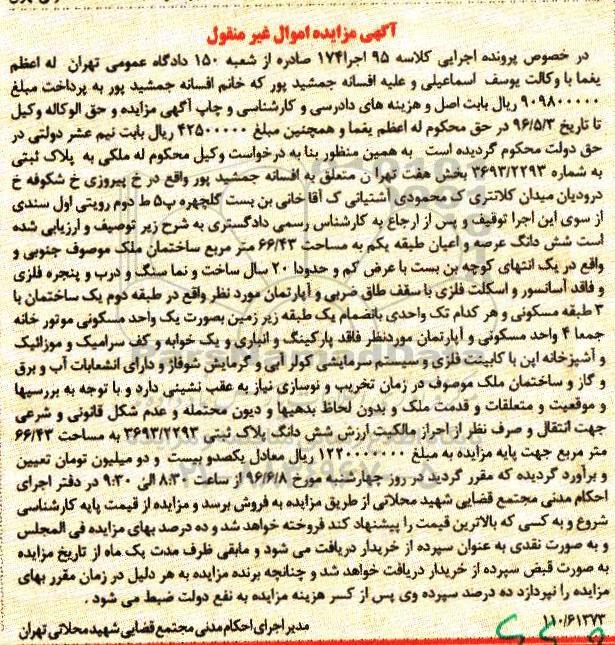 آگهی مزایده اموال غیر منقول
در خصوص پرونده اجرایی کلاسه ۹۵ اجرا۱۷۴ صادره از شعبه ۱۵۰ دادگاه عمومی تهران له اعظم
یغما با وکالت یوسف اسماعیلی و علیه افسانه جمشید پور که خانم افسانه جمشید پور به پرداخت مبلغ
۹۰۹۸۰۰۰۰۰ ریال بابت اصل و هزینه های دادرسی و کارشناسی و چاپ آگهی مزایده و حق الوکاله وکیل
تا تاریخ ۹۶/۵/۳ در حق محکوم له اعظم یغما و همچنین مبلغ ۴۲۵۰۰۰۰۰ ریال بابت نیم عشر دولتی در
حق دولت محکوم گردیده است به همین منظور بنا به درخواست وکیل محکوم له ملکی به پلاک ثبتی
به شماره ۳۶۹۳/۲۲۹۳ بخش هفت تهران متعلق به افسانه جمشید پور واقع در خ پیروزی خ شکوفه خ
درودیان میدان کلانتری ک محمودی آشتیانی ک آقاخانی بن بست گلچهره پ۵ ط دوم رویتی اول سندی
از سوی این اجرا توقیف و پس از ارجاع به کارشناس رسمی دادگستری به شرح زیر توصیف و ارزیابی شده
است شش دانگ عرصه و اعیان طبقه یکم به مساحت ۶۶/۴۳ متر مربع ساختمان ملک موصوف جنوبی و
واقع در یک انتهای کوچه بن بست با عرض کم و حدودا ۲۰ سال ساخت و نما سنگ و درب و پنجره فلزی
و فاقد آسانسور و اسکلت فلزی با سقف طاق ضربی و آپارتمان مورد نظر واقع در طبقه دوم یک ساختمان با
۳ طبقه مسکونی و هر کدام تک واحدی بانضمام یک طبقه زیر زمین بصورت یک واحد مسکونی موتور خانه
جمعا ۴ واحد مسکونی و آپارتمان موردنظر فاقد پارکینگ و انباری و یک خوابه و کف سرامیک و موزائیک
و آشپزخانه اپن با کابینت فلزی و سیستم سرمایشی کولر آبی و گرمایش شوفاژ و دارای انشعابات آب و برق
و گاز و ساختمان ملک موصوف در زمان تخریب و نوسازی نیاز به عقب نشینی دارد و با توجه به بررسیها
و موقعیت و متعلقات و قدمت ملک و بدون لحاظ بدهیها و دیون محتمله و عدم شکل قانونی و شرعی
جهت انتقال و صرف نظر از احراز مالکیت ارزش شش دانگ پلاک ثبتی ۳۶۹۳/۲۲۹۳ به مساحت ۶۶/۴۳
متر مربع جهت پایه مزایده به مبلغ ۱۲۲۰۰۰۰۰۰۰ ریال معادل یکصدو بیست و دو میلیون تومان تعیین
و برآورد گردیده که مقرر گردید در روز چهارشنبه مورخ ۹۶/۶/۸ از ساعت ۸:۳۰ الی ۹:۳۰ در دفتر اجرای
احکام مدنی مجتمع قضایی شهید محلاتی از طریق مزایده به فروش برسد و مزایده از قیمت پایه کارشناسی
شروع و به کسی که بالاترین قیمت را پیشنهاد کند فروخته خواهد شد و ده درصد بهای مزایده فی المجلس
و به صورت نقدی به عنوان سپرده از خریدار دریافت می شود و مابقی ظرف مدت یک ماه از تاریخ مزایده
به صورت قبض سپرده از خریدار دریافت خواهد شد و چنانچه برنده مزایده به هر دلیل در زمان مقرر بهای
مزایده را نپردازد ده درصد سپرده وی پس از کسر هزینه مزایده به نفع دولت ضبط می شود .
۱۱۰/۶۱۳۷۳
مدیر اجرای احکام مدنی مجتمع قضایی شهید محلاتی تهران